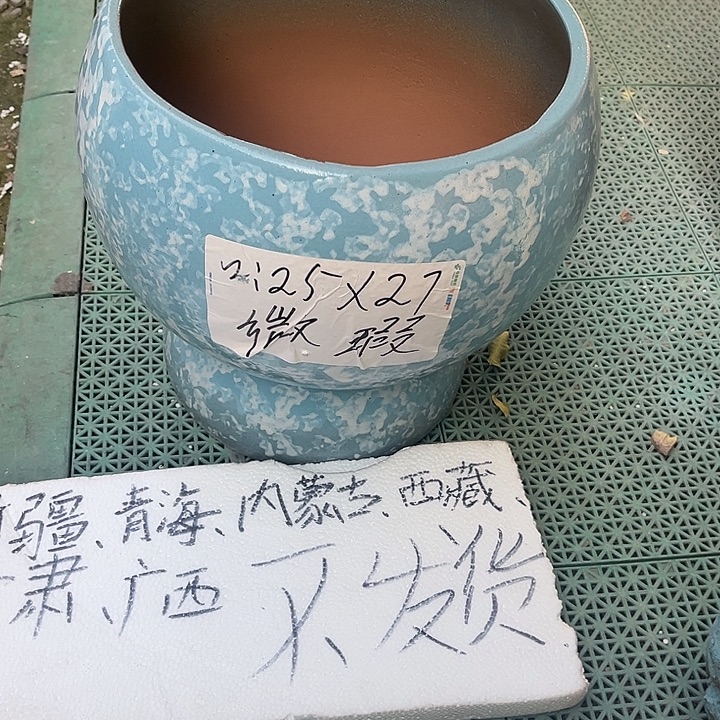 25X27
微瑕
疆、青海、内蒙古、西藏、
肃、广西 不发货